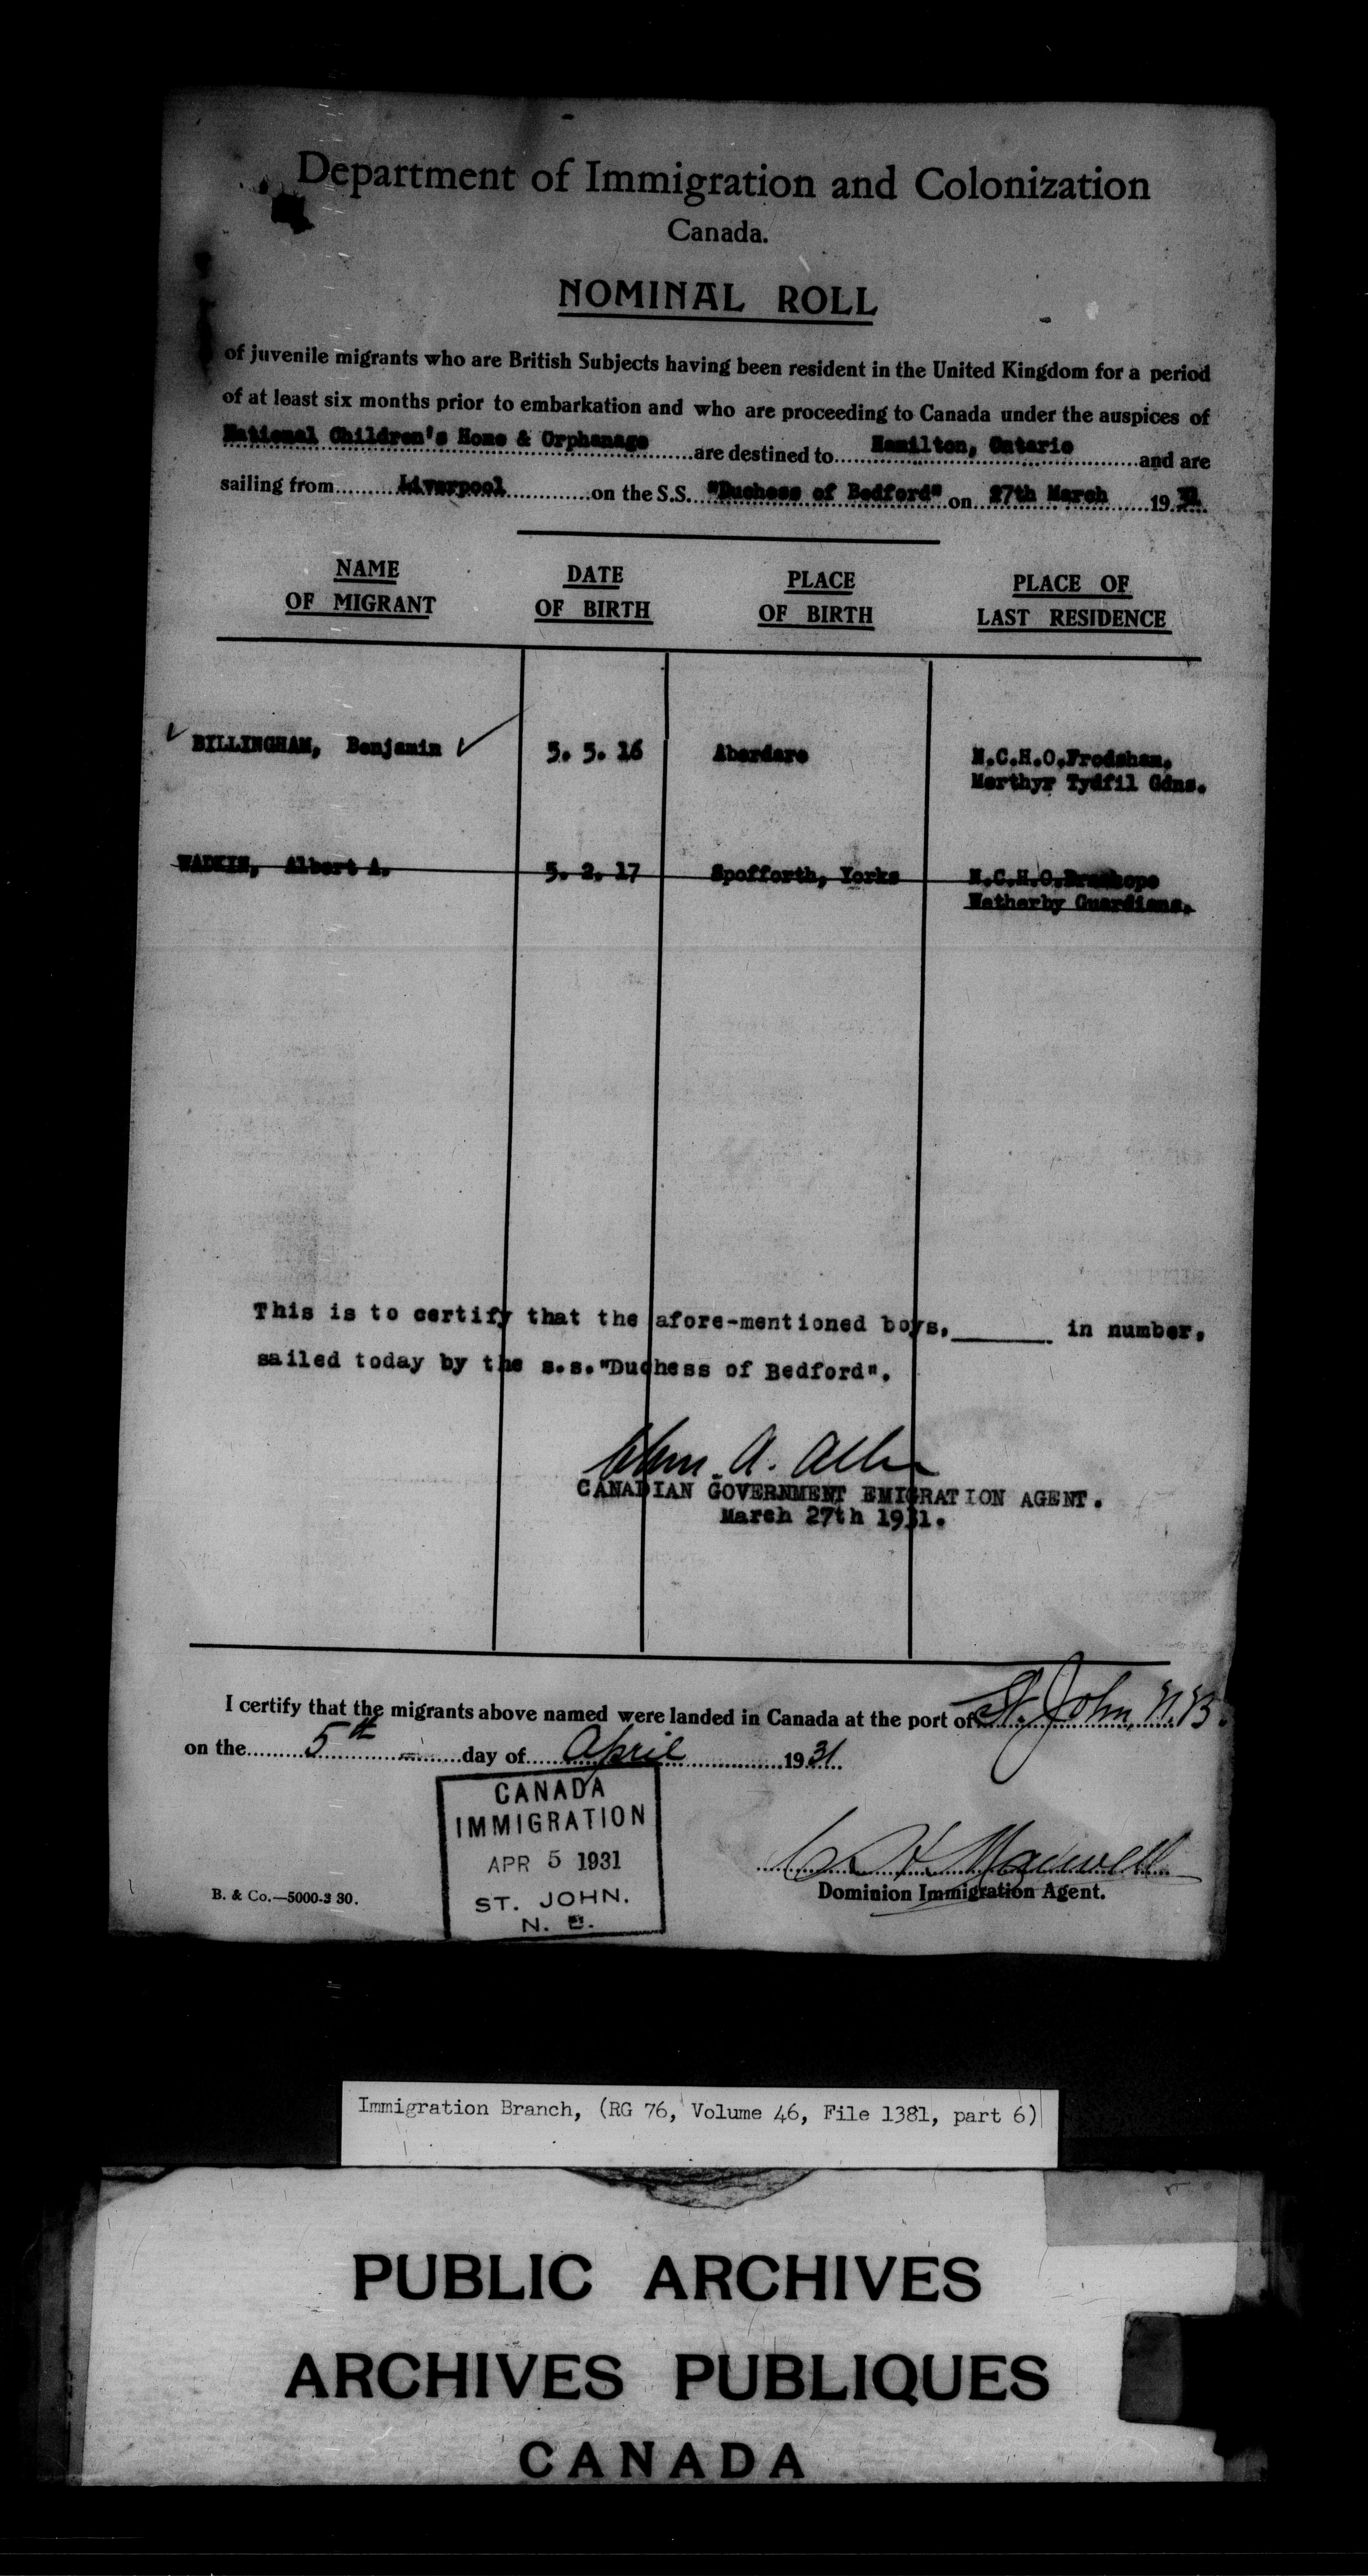 Department of Immigration and Colonization
Canada.
NOMINAL ROLL
of juvenile migrants who are British Subjects having been resident in the United Kingdom for a period
of at least six months prior to embarkation and who are proceeding to Canada under the auspices of
National Children's Home & Orphanage are destined to Hamilton, Ontario and are
sailing from Liverpool on the S.S. "Duchess of Bedford" on 27th March 1931.
NAME OF MIGRANT DATE OF BIRTH PLACE OF BIRTH PLACE OF LAST RESIDENCE
BILLINGHAM, Benjamin 5. 5. 16 Aberdare N.C.H.O.Frodsham.
Merthyr Tydfil Gdns.
WADKIN, Albert A. 5. 2. 17 Spofforth, Yorks N.C.H.O.Bramhope
Wetherby Guardians.
This is to certify that the afore-mentioned boys, ______ in number,
sailed today by the s.s."Duchess of Bedford".
A.
CANADIAN GOVERNMENT EMIGRATION AGENT.
March 27th 1931.
I certify that the migrants above named were landed in Canada at the port of St. John, N.B.
on the 5th day of April 1931
CANADA
IMMIGRATION
APR 5 1931
ST. JOHN.
N. B.
Maxwell
Dominion Immigration Agent.
B. & Co.—5000-3 30.
Immigration Branch, (RG 76, Volume 46, File 1381, part 6)
PUBLIC ARCHIVES
ARCHIVES PUBLIQUES
CANADA